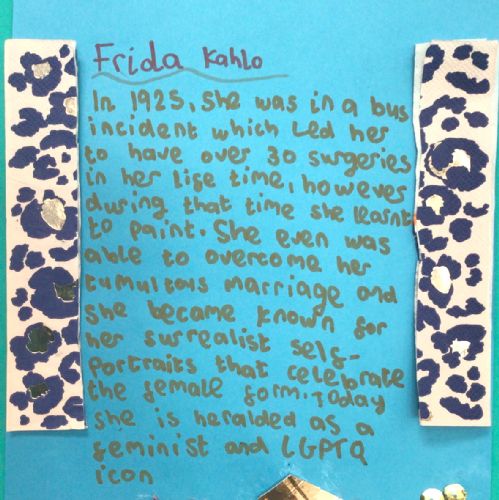 Frida Kahlo
In 1925, she was in a bus
incident which led her
to have over 30 surgeries
in her life time, however
during that time she learnt
to paint. She even was
able to overcome her
tumultous marriage and
she became known for
her surrealist self-
portraits that celebrate
the female form. Today
she is heralded as a
feminist and LGPTQ
icon